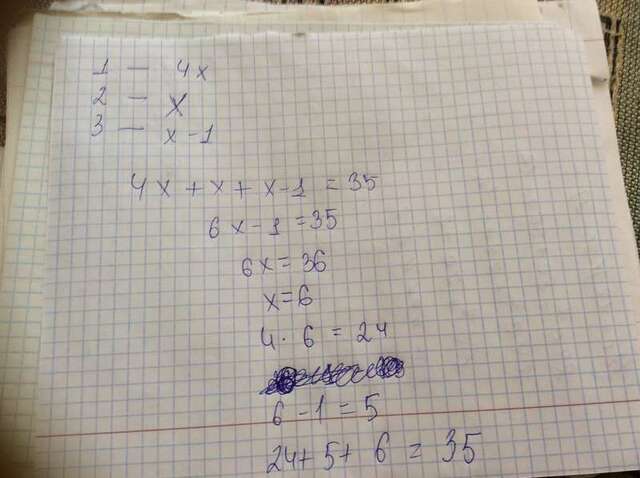 1 — 4x
2 — x
3 — x-1
4x + x + x-1 = 35
6x-1 = 35
6x = 36
x=6
4 · 6 = 24
6 - 1 = 5
24+5+6 = 35